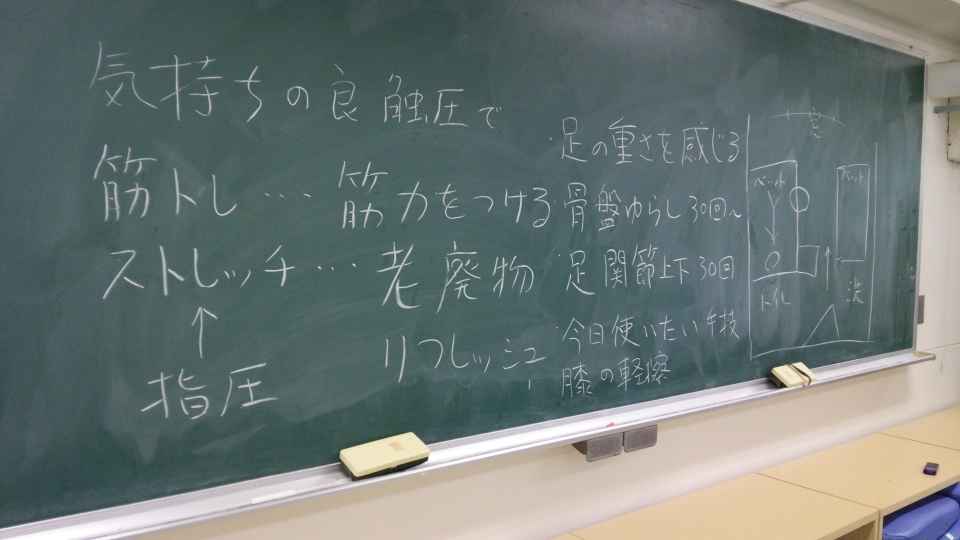 気持ちの良触圧で
筋トレ… 筋力をつける
ストレッチ… 老廃物
リフレッシュ
↑
指圧
・足の重さを感じる
・骨盤ゆらし30回〜
足関節上下30回
・今日使いたい手技
膝の軽擦
窓
ベット
ベット